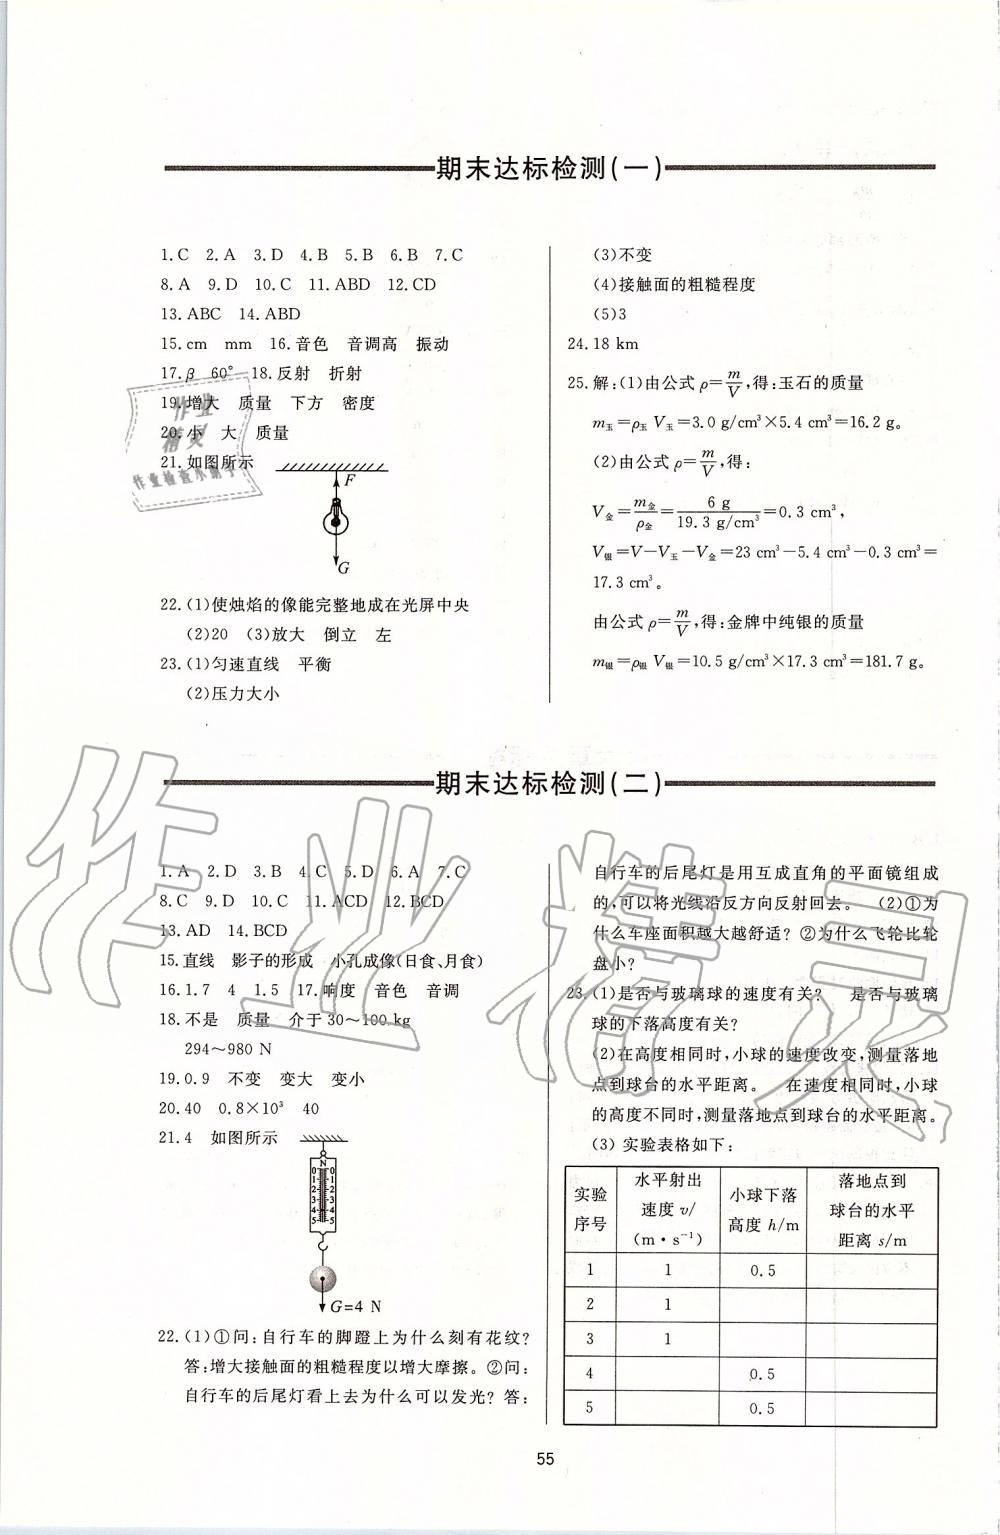 期末达标检测(一)
1.C 2.A 3.D 4.B 5.B 6.B 7.C
8.A 9.D 10.C 11.ABD 12.CD
13.ABC 14.ABD
15.cm mm 16.音色 音调高 振动
17.β 60° 18.反射 折射
19.增大 质量 下方 密度
20.小 大 质量
21.如图所示
F
G
22.(1)使烛焰的像能完整地成在光屏中央
(2)20 (3)放大 倒立 左
23.(1)匀速直线 平衡
(2)压力大小
(3)不变
(4)接触面的粗糙程度
(5)3
24.18 km
25.解:(1)由公式 ρ=m/V,得:玉石的质量
m玉=ρ玉 V玉=3.0 g/cm³×5.4 cm³=16.2 g。
(2)由公式 ρ=m/V,得:
V金=m金/ρ金=6 g/19.3 g/cm³=0.3 cm³,
V银=V-V玉-V金=23 cm³-5.4 cm³-0.3 cm³=
17.3 cm³。
由公式 ρ=m/V,得:金牌中纯银的质量
m银=ρ银 V银=10.5 g/cm³×17.3 cm³=181.7 g。
作业
精灵
作业检查小助手
期末达标检测(二)
1.A 2.D 3.B 4.C 5.D 6.A 7.C
8.C 9.D 10.C 11.ACD 12.BCD
13.AD 14.BCD
15.直线 影子的形成 小孔成像(日食、月食)
16.1.7 4 1.5 17.响度 音色 音调
18.不是 质量 介于30～100 kg
294～980 N
19.0.9 不变 变大 变小
20.40 0.8×10³ 40
21.4 如图所示
N
0 0
1 1
2 2
3 3
4 4
5 5
G=4 N
22.(1)①问:自行车的脚蹬上为什么刻有花纹?
答:增大接触面的粗糙程度以增大摩擦。②问:
自行车的后尾灯看上去为什么可以发光? 答:
自行车的后尾灯是用互成直角的平面镜组成
的,可以将光线沿反方向反射回去。 (2)①为
什么车座面积越大越舒适? ②为什么飞轮比轮
盘小?
23.(1)是否与玻璃球的速度有关? 是否与玻璃
球的下落高度有关?
(2)在高度相同时,小球的速度改变,测量落地
点到球台的水平距离。 在速度相同时,小球
的高度不同时,测量落地点到球台的水平距离。
(3) 实验表格如下:
实验序号 水平射出速度 v/(m·s⁻¹) 小球下落高度 h/m 落地点到球台的水平距离 s/m
1 1 0.5
2 1
3 1
4 0.5
5 0.5
作业精灵
55